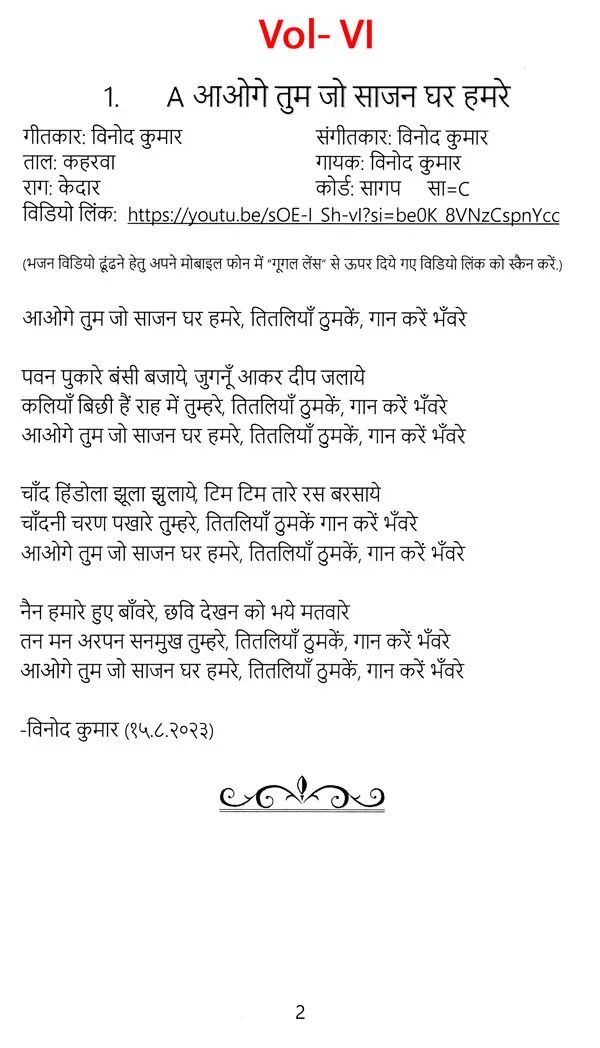 Vol- VI
1. A आओगे तुम जो साजन घर हमरे
गीतकार: विनोद कुमार संगीतकार: विनोद कुमार
ताल: कहरवा गायक: विनोद कुमार
राग: केदार कोर्ड: सागप सा=C
विडियो लिंक: https://youtu.be/sOE-I_Sh-vI?si=be0K_8VNzCspnYcc
(भजन विडियो ढूंढने हेतु अपने मोबाइल फोन में "गूगल लेंस" से ऊपर दिये गए विडियो लिंक को स्कैन करें.)
आओगे तुम जो साजन घर हमरे, तितलियाँ ठुमकें, गान करें भँवरे
पवन पुकारे बंसी बजाये, जुगनूँ आकर दीप जलाये
कलियाँ बिछी हैं राह में तुम्हरे, तितलियाँ ठुमकें, गान करें भँवरे
आओगे तुम जो साजन घर हमरे, तितलियाँ ठुमकें, गान करें भँवरे
चाँद हिंडोला झूला झुलाये, टिम टिम तारे रस बरसाये
चाँदनी चरण पखारे तुम्हरे, तितलियाँ ठुमकें गान करें भँवरे
आओगे तुम जो साजन घर हमरे, तितलियाँ ठुमकें, गान करें भँवरे
नैन हमारे हुए बाँवरे, छवि देखन को भये मतवारे
तन मन अरपन सनमुख तुम्हरे, तितलियाँ ठुमकें, गान करें भँवरे
आओगे तुम जो साजन घर हमरे, तितलियाँ ठुमकें, गान करें भँवरे
-विनोद कुमार (१५.८.२०२३)
2